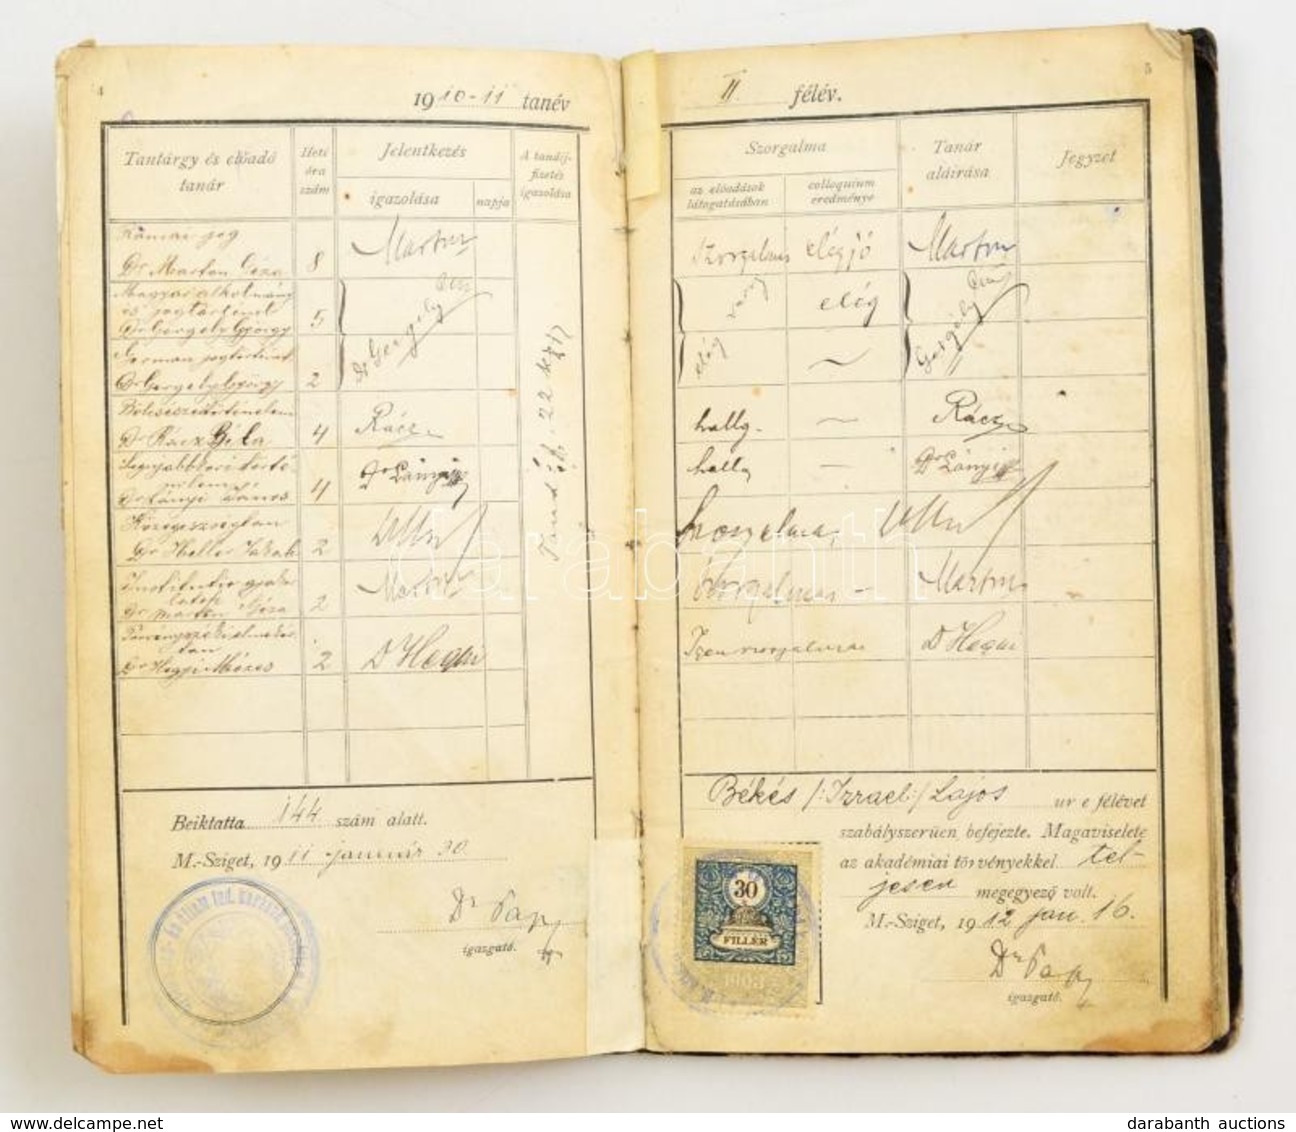 4
1910-11 tanév
Tantárgy és előadó tanár
Heti óra szám
Jelentkezés
igazolása
napja
A tandíjfizetés igazolása
Római jog
Dr Marton Géza 8 Marton
Magyar alkotmány
és jogtörténet
Dr Gergely György 5 Dr Gergely
German jogtörténet
Dr Gergely György 2
Bölcsészettörténelem
Dr Rácz Béla 4 Rácz
Legújabbkori törté-
nelem
Dr Lányi János 4 Dr Lányi
Közegészségtan
Dr Heller Jakab 2
Institutio gyakor-
latok
Dr Marton Géza 2 Marton
Dr Hegyi Mózes 2 Dr Hegyi
Beiktatta 144 szám alatt.
M.-Sziget, 1911 január 30
Dr Papp
igazgató.
5
II félév.
Szorgalma
az előadások látogatásában
colloquium eredménye
Tanár aláírása
Jegyzet
Szorgalmas elégjó Marton
elég Gergely
hallg. — Rácz
hallg — Dr Lányi
szorgalmas
szorgalmas — Marton
Igen szorgalmas Dr Hegyi
Békés /:Izrael:/ Lajos ur e félévet
szabályszerüen befejezte. Magaviselete
az akadémiai törvényekkel tel-
jesen megegyező volt.
M.-Sziget, 1912 jan. 16.
Dr Papp
igazgató.
30
FILLÉR
1903
darabanth
delcampe.net
darabanth auctions